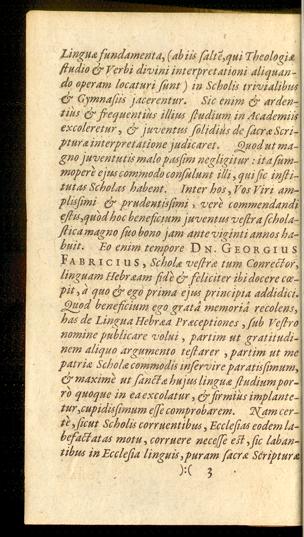 Linguæ fundamenta, (ab iis saltē, qui Theologiæ
studio & Verbi divini interpretationi aliquan-
do operam locaturi sunt) in Scholis trivialibus
& Gymnasiis jacerentur. Sic enim & arden-
tiùs & frequentiùs illius studium in Academiis
excoleretur, & juventus solidiùs de sacræ Scri-
pturæ interpretatione judicaret. Quod ut ma-
gno juventutis malo passim negligitur: ita sum-
moperè ejus commodo consulunt illi, qui sic insti-
tutas Scholas habent. Inter hos, Vos Viri am-
plissimi & prudentissimi, verè commendandi
estis, quòd hoc beneficium juventus vestra schola-
stica magno suo bono jam ante viginti annos ha-
buit. Eo enim tempore DN. GEORGIUS
FABRICIUS, Scholæ vestræ tum Conrector,
linguam Hebræam fidè & feliciter ibi docere cœ-
pit, à quo & ego prima ejus principia addidici.
Quod beneficium ego gratâ memoriâ recolens,
has de Lingua Hebræa Præceptiones, sub Vestro
nomine publicare volui, partim ut gratitudi-
nem aliquo argumento testarer, partim ut me
patriæ Scholæ commodis inservire paratissimum,
& maximè ut sanctæ hujus linguæ studium por-
rò quoque in ea excolatur, & firmius implante-
tur, cupidissimum esse comprobarem. Nam cer-
tè, sicut Scholis corruentibus, Ecclesias eodem la-
befactatas motu, corruere necesse est, sic laban-
tibus in Ecclesia linguis, puram sacræ Scripturæ
):( 3